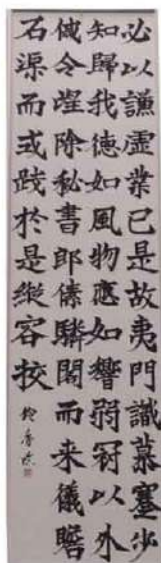 必以謙虛業己是故夷門識慕蹇步
知歸我德如風物應如響弱冠以外
俄令涅除秘書郎傃驎閣而来儀瞻
石渠而或踐於是縱容挍